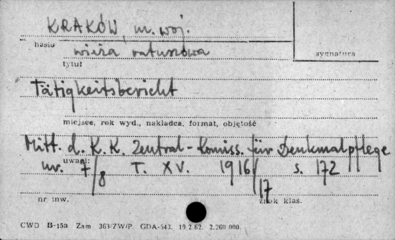 KRAKÓW, m. woj.
hasło wieża ratuszowa sygnatura
tytuł
Tätigkeitsbericht
miejsce, rok wyd., nakładca, format, objętość
Mitt. d. K. K. Zentral-Komiss. für Denkmalpflege
uwagi:
nr. 7/8 T. XV. 1916/17 s. 172
nr inw. znak klas.
CWD B-15a Zam. 363/ZW/P. GDA-543. 19.2.62. 2.260.000.